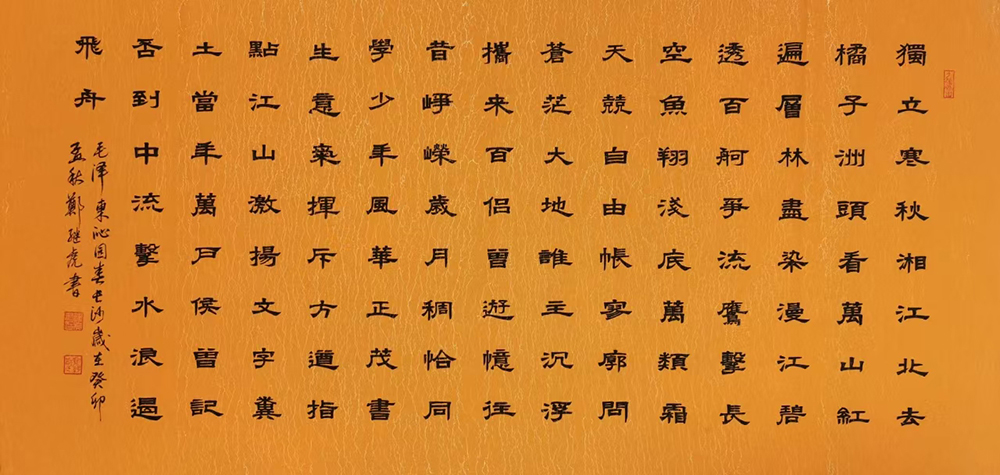 獨立寒秋湘江北去
橘子洲頭看萬山紅
遍層林盡染漫江碧
透百舸爭流鷹擊長
空魚翔淺底萬類霜
天競自由帳寥廓問
蒼茫大地誰主沉浮
攜來百侶曾遊憶往
昔崢嶸歲月稠恰同
學少年風華正茂書
生意氣揮斥方遒指
點江山激揚文字糞
土當年萬戶侯曾記
否到中流擊水浪遏
飛舟
毛泽東沁园春長沙歲在癸卯
孟秋鄭继虎書